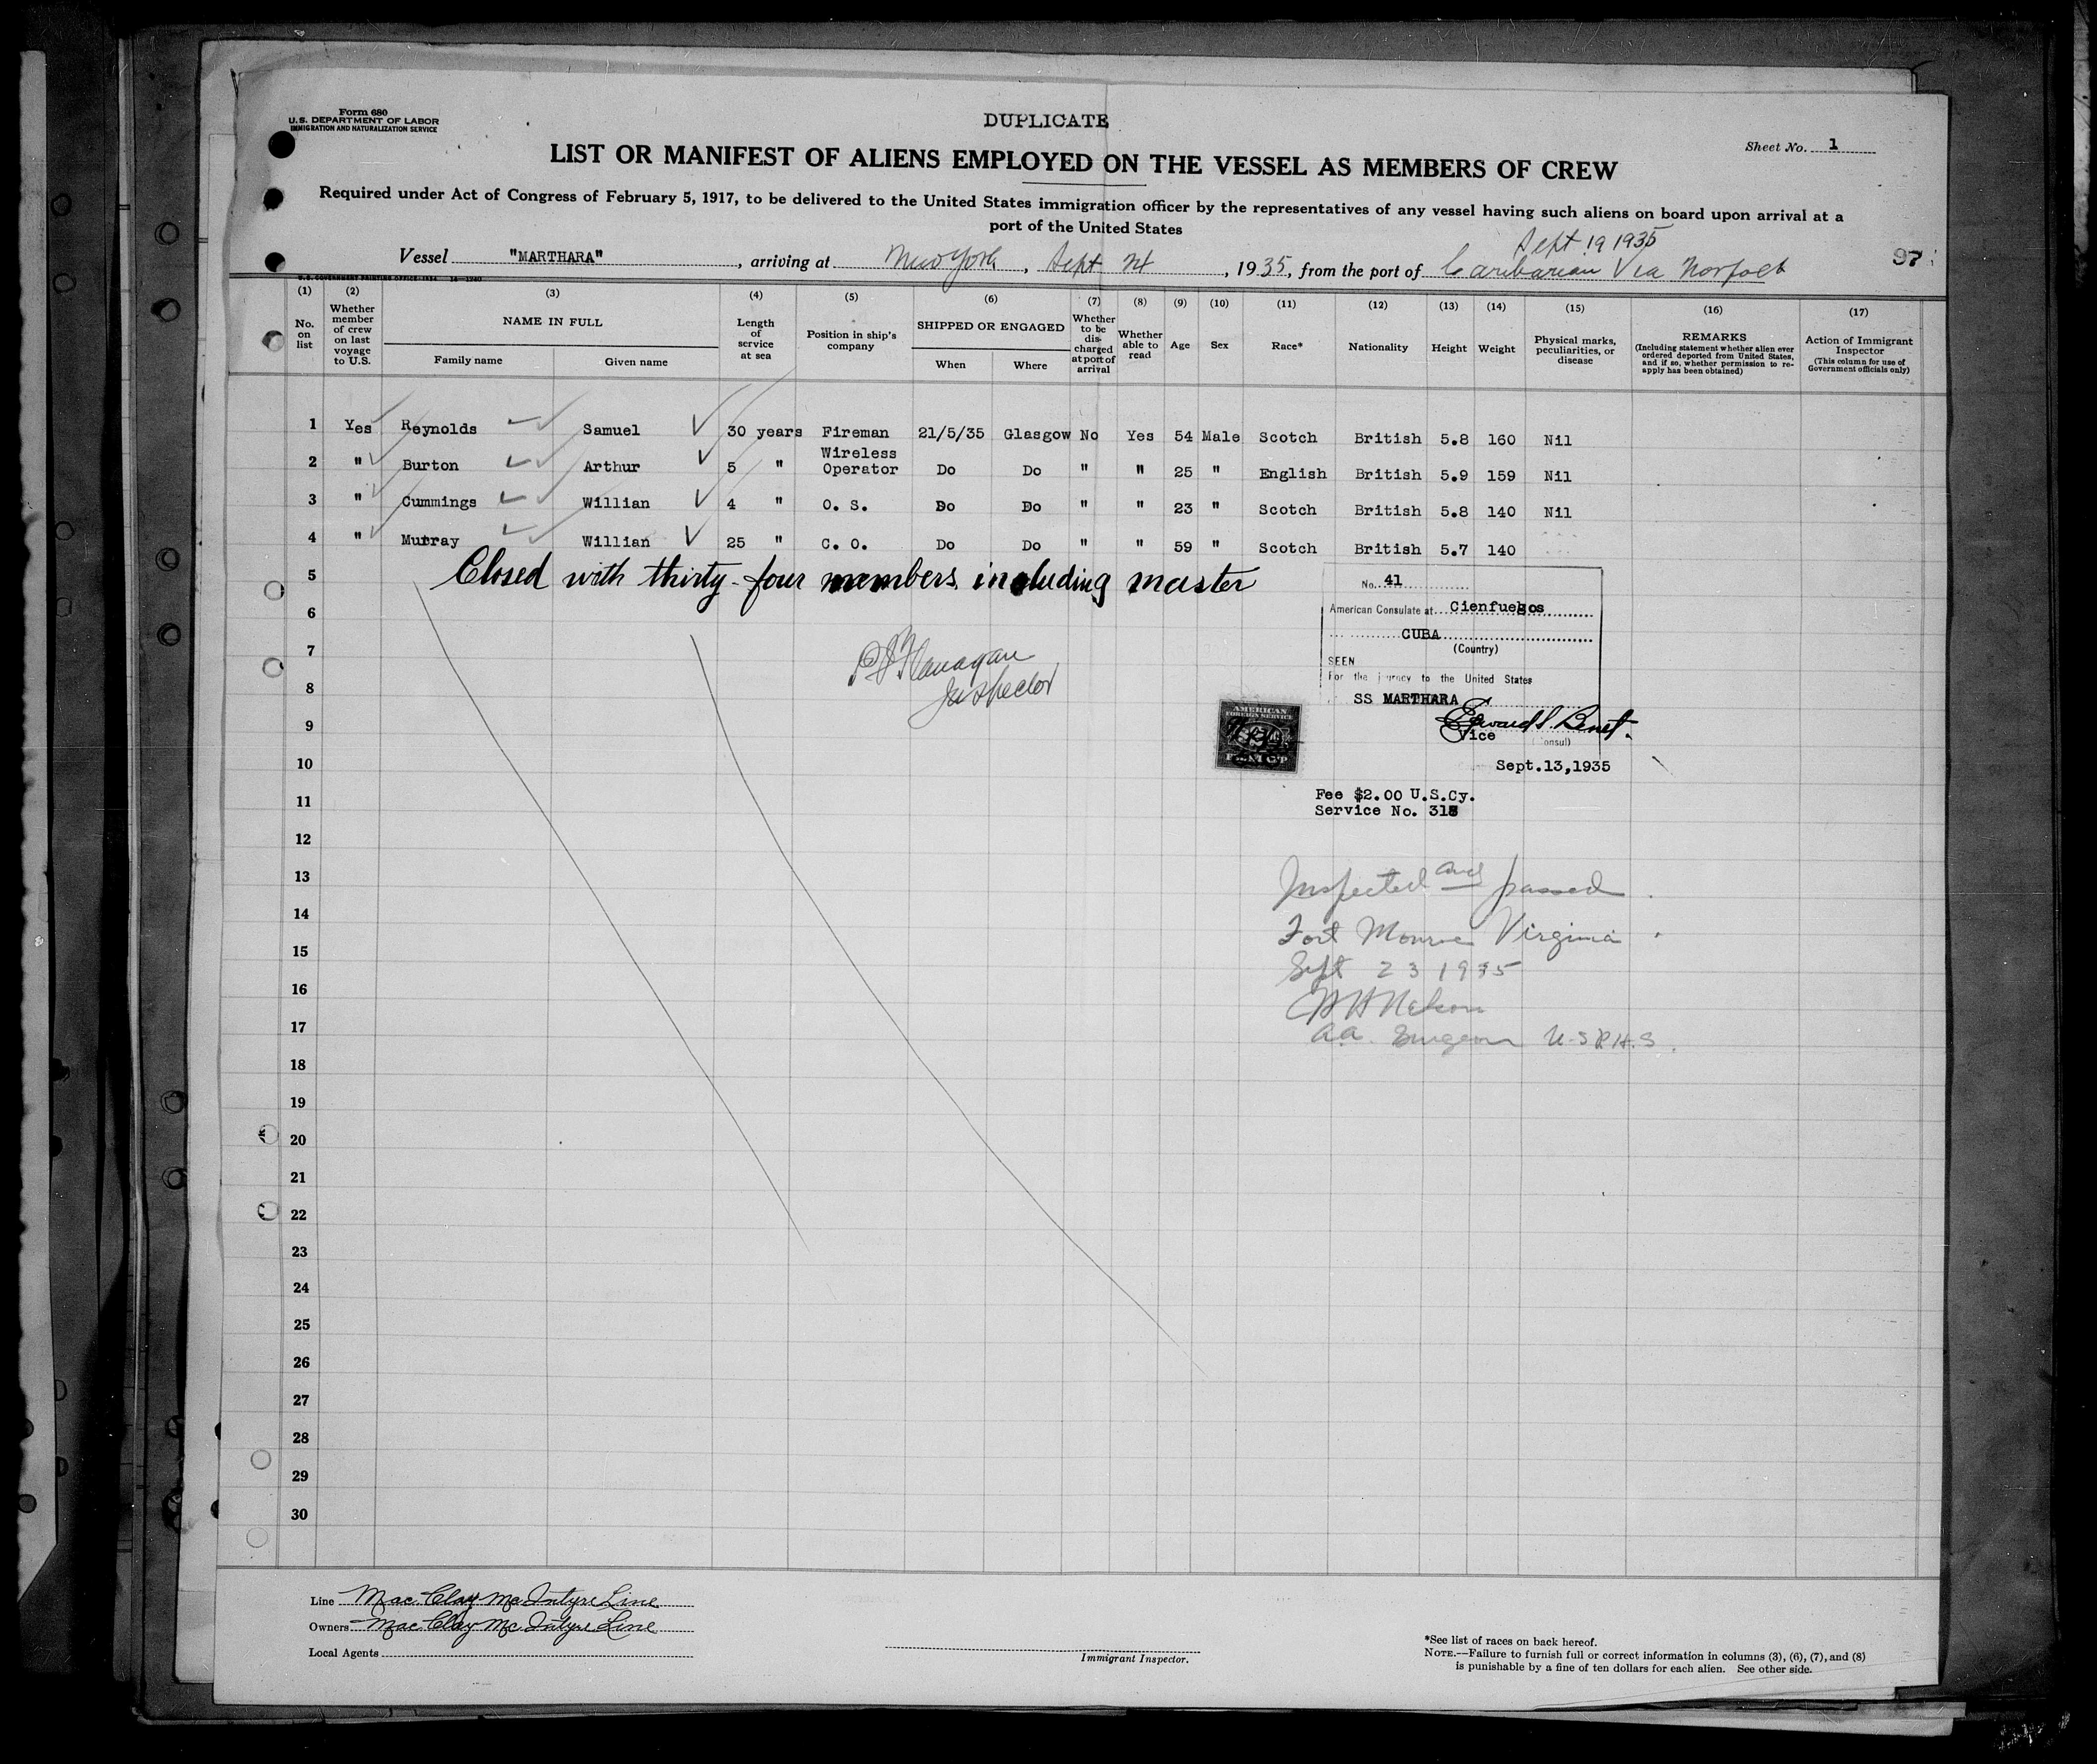 Form 680
U.S. DEPARTMENT OF LABOR
IMMIGRATION AND NATURALIZATION SERVICE
DUPLICATE
Sheet No. 1
LIST OR MANIFEST OF ALIENS EMPLOYED ON THE VESSEL AS MEMBERS OF CREW
Required under Act of Congress of February 5, 1917, to be delivered to the United States immigration officer by the representatives of any vessel having such aliens on board upon arrival at a
port of the United States
Sept 19 1935
97
Vessel "MARTHARA", arriving at New York, Sept 24, 1935, from the port of Caribarian Via Norfolk
(1) (2) (3) (4) (5) (6) (7) (8) (9) (10) (11) (12) (13) (14) (15) (16) (17)
No. on list
Whether member of crew on last voyage to U.S.
NAME IN FULL
Family name
Given name
Length of service at sea
Position in ship's company
SHIPPED OR ENGAGED
When
Where
Whether to be discharged at port of arrival
Whether able to read
Age
Sex
Race*
Nationality
Height
Weight
Physical marks, peculiarities, or disease
REMARKS
(Including statement whether alien ever ordered deported from United States, and if so, whether permission to re-apply has been obtained)
Action of Immigrant Inspector
(This column for use of Government officials only)
1 Yes Reynolds Samuel 30 years Fireman 21/5/35 Glasgow No Yes 54 Male Scotch British 5.8 160 Nil
2 " Burton Arthur 5 " Wireless Operator Do Do " " 25 " English British 5.9 159 Nil
3 " Cummings Willian 4 " O. S. Do Do " " 23 " Scotch British 5.8 140 Nil
4 " Murray Willian 25 " C. O. Do Do " " 59 " Scotch British 5.7 140
5 Closed with thirty-four members including master
6
7
8
9
10
11
12
13
14
15
16
17
18
19
20
21
22
23
24
25
26
27
28
29
30
P J Flanagan
Inspector
No. 41
American Consulate at Cienfuegos
CUBA
(Country)
SEEN
For the journey to the United States
SS MARTHARA
Edward S. Benet
Vice
Consul)
Sept.13,1935
AMERICAN
FOREIGN SERVICE
Fee $2.00 U.S.Cy.
Service No. 318
Inspected and passed
Fort Monroe Virginia
Sept 23 1935
H Nelson
a.a. Surgeon U.S.P.H.S.
Line Mac Clay Mc Intyre Line
Owners Mac Clay Mc Intyre Line
Local Agents
Immigrant Inspector.
*See list of races on back hereof.
NOTE.—Failure to furnish full or correct information in columns (3), (6), (7), and (8)
is punishable by a fine of ten dollars for each alien. See other side.